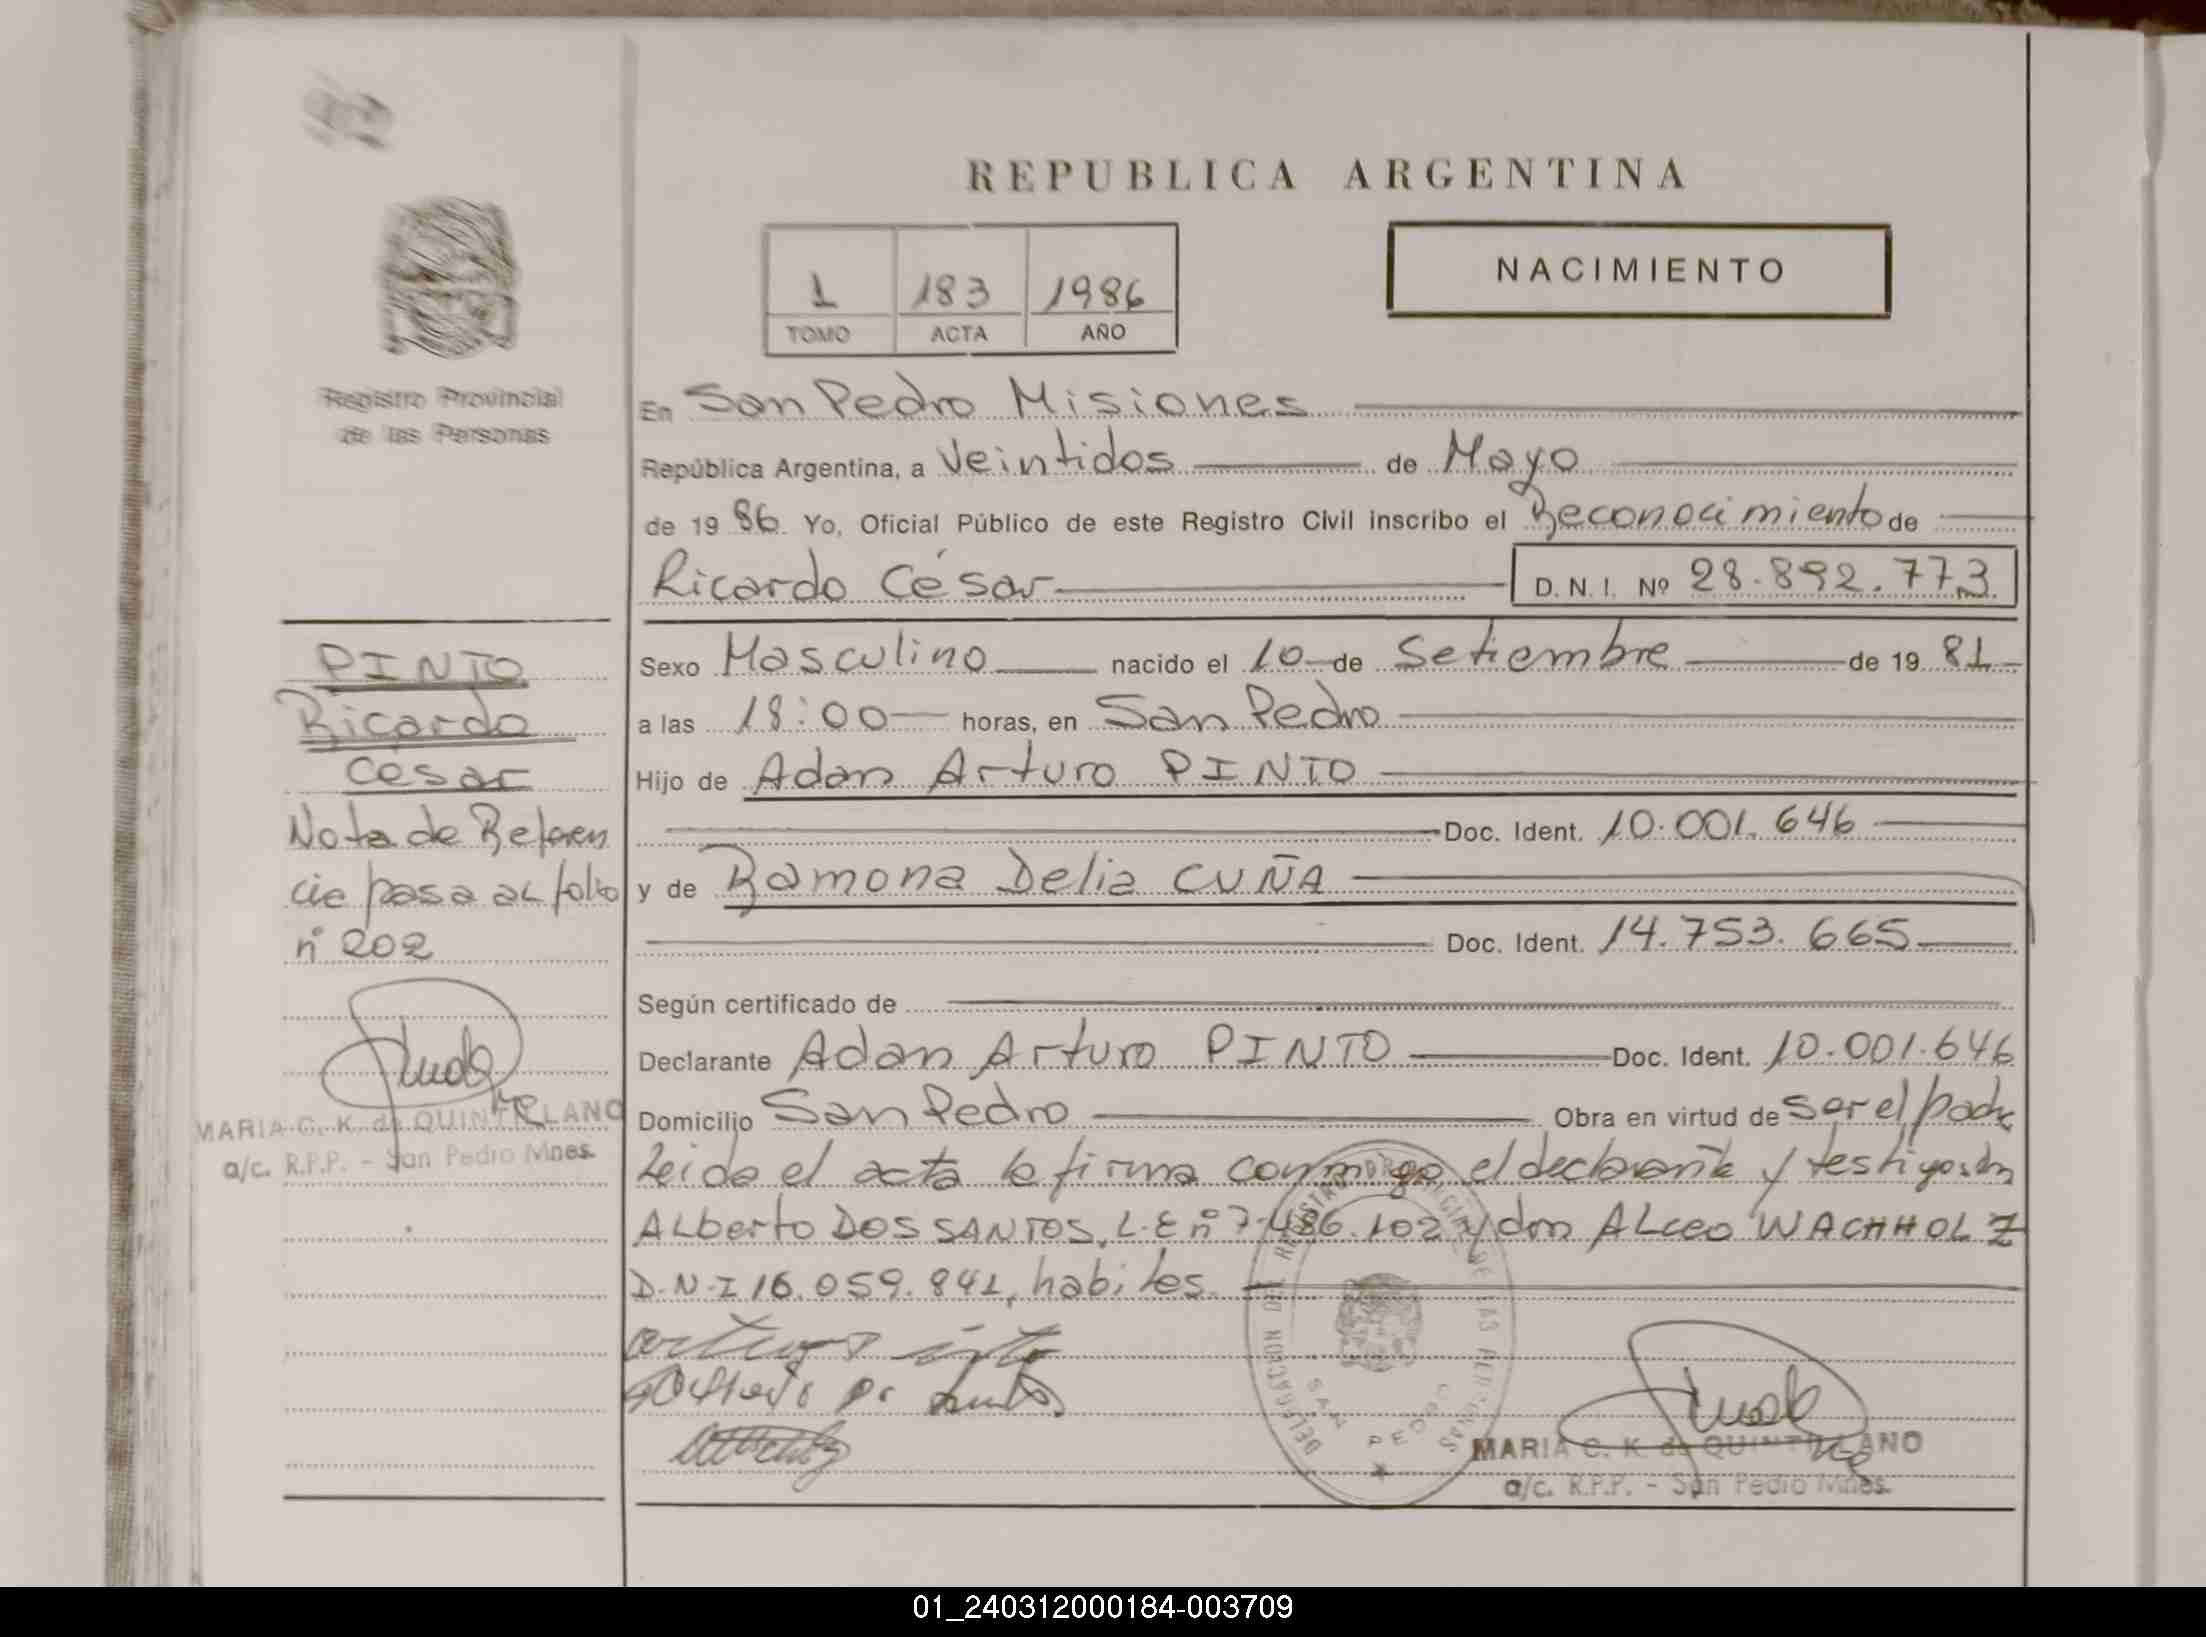 REPUBLICA ARGENTINA
NACIMIENTO
1 183 1986
TOMO ACTA AÑO
Registro Provincial
de las Personas
En San Pedro Misiones
República Argentina, a Veintidos de Mayo
de 19 86. Yo, Oficial Público de este Registro Civil inscribo el Reconocimiento de
Ricardo César D. N. I. Nº 28.892.773
PINTO
Ricardo
cesar
Nota de Referen
cie pasa al folio
nº 202
MARIA C. K. de QUINTILLANO
a/c. R.P.P. - San Pedro Mnes.
Sexo Masculino nacido el 10 de Setiembre de 19 81
a las 18:00 horas, en San Pedro
Hijo de Adan Arturo PINTO
Doc. Ident. 10.001.646
y de Ramona Delia CUÑA
Doc. Ident. 14.753.665
Según certificado de
Declarante Adan Arturo PINTO Doc. Ident. 10.001.646
Domicilio San Pedro Obra en virtud de ser el padre
Leida el acta la firma conmigo el declarante y testigos don
Alberto DOS SANTOS, L.E nº 7.486.102 y don Alceo WACHHOLZ
D.N.I 16.059.841, habiles.
DELEGACION DEL REGISTRO PROVINCIAL DE LAS PERSONAS
SAN PEDRO
MARIA C. K. de QUINTILLANO
a/c. R.P.P. - San Pedro Mnes.
01_240312000184-003709